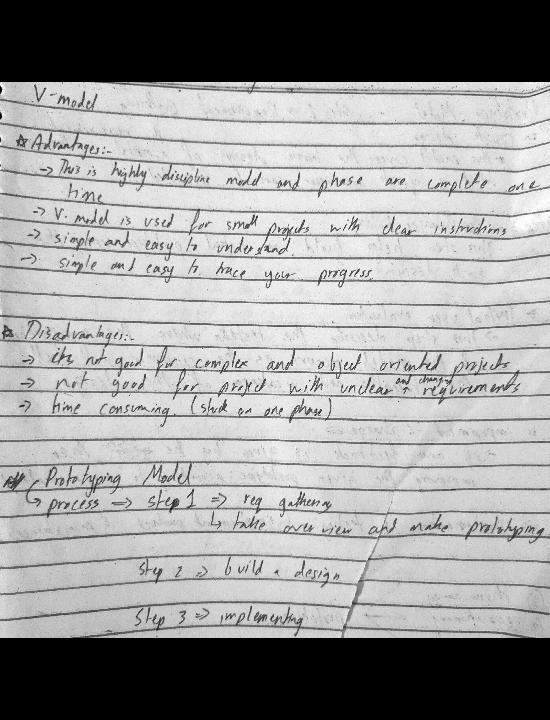 V-model
☆ Advantages:-
→ This is highly discipline model and phase are complete one
time
→ V. model is used for small projects with clear instructions
→ simple and easy to understand.
→ simple and easy to trace your progress.
☆ Disadvantages:-
→ its not good for complex and object oriented projects
→ not good for project with unclear and changing requirements
→ time consuming. (stuck on one phase)
Prototyping Model
↳ process ⇒ step 1 ⇒ req gathering
↳ take over view and make prototyping
step 2 ⇒ build a design
Step 3 ⇒ implementing